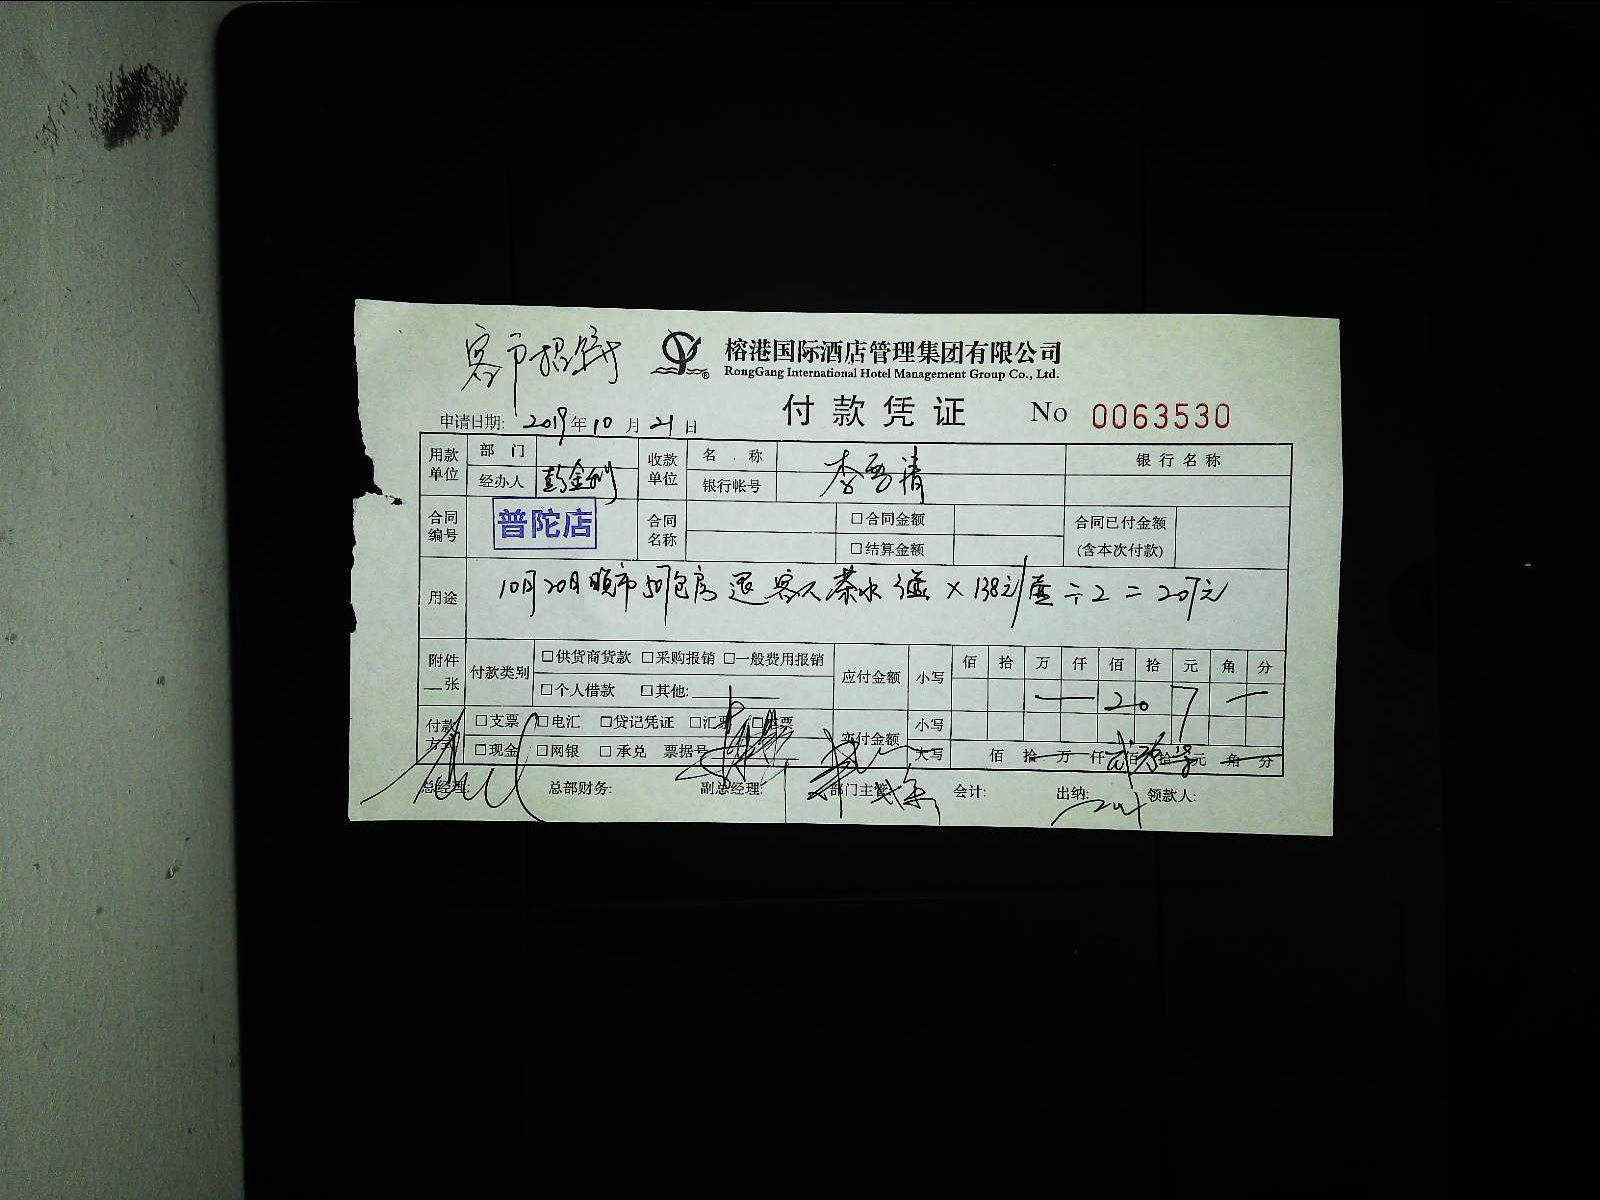 榕港国际酒店管理集团有限公司
RongGang International Hotel Management Group Co., Ltd.
付款凭证 No 0063530
申请日期: 2019年10月21日
用款单位 部门 收款单位 名.称 银行名称
经办人 银行帐号
合同编号 普陀店 合同名称 □合同金额 合同已付金额(含本次付款)
□结算金额
用途 10月20日晚市507包房退客人茶水3壶×138元/壶÷2=207元
附件__张 付款类别 □供货商货款 □采购报销 □一般费用报销 应付金额 小写 佰 拾 万 仟 佰 拾 元 角 分
□个人借款 □其他: 207
付款方式 □支票 □电汇 □贷记凭证 □汇票 □本票 实付金额 小写
□现金 □网银 □承兑 票据号 大写 佰 拾 万 仟 佰 拾 元 角 分
总经理: 总部财务: 副总经理: 部门主管: 会计: 出纳: 领款人: